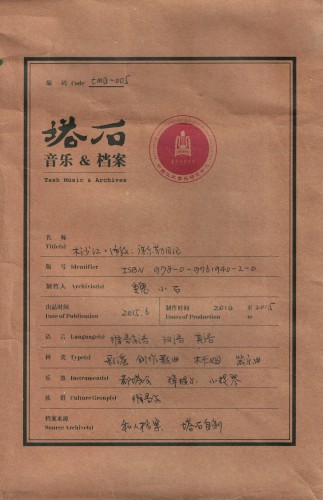 编 码 Code: tma-005
塔石
音乐 & 档案
Tash Music & Archives
名 称
Title(s)
版 号 Identifier ISBN 978-0-9961940-2-0
制作人 Archivist(s) 魏 小石
出品时间 2015.6 制作时间 2010 至 2015
Date of Publication Dates of Production
语 言 Language(s) 维吾尔语 汉语 英语
种 类 Type(s) 创作歌曲 木卡姆
乐 器 Instrument(s) 都塔尔 弹拨尔 小提琴
族 群 Culture Group(s) 维吾尔
档案来源 私人档案 塔石自制
Source Archive(s)